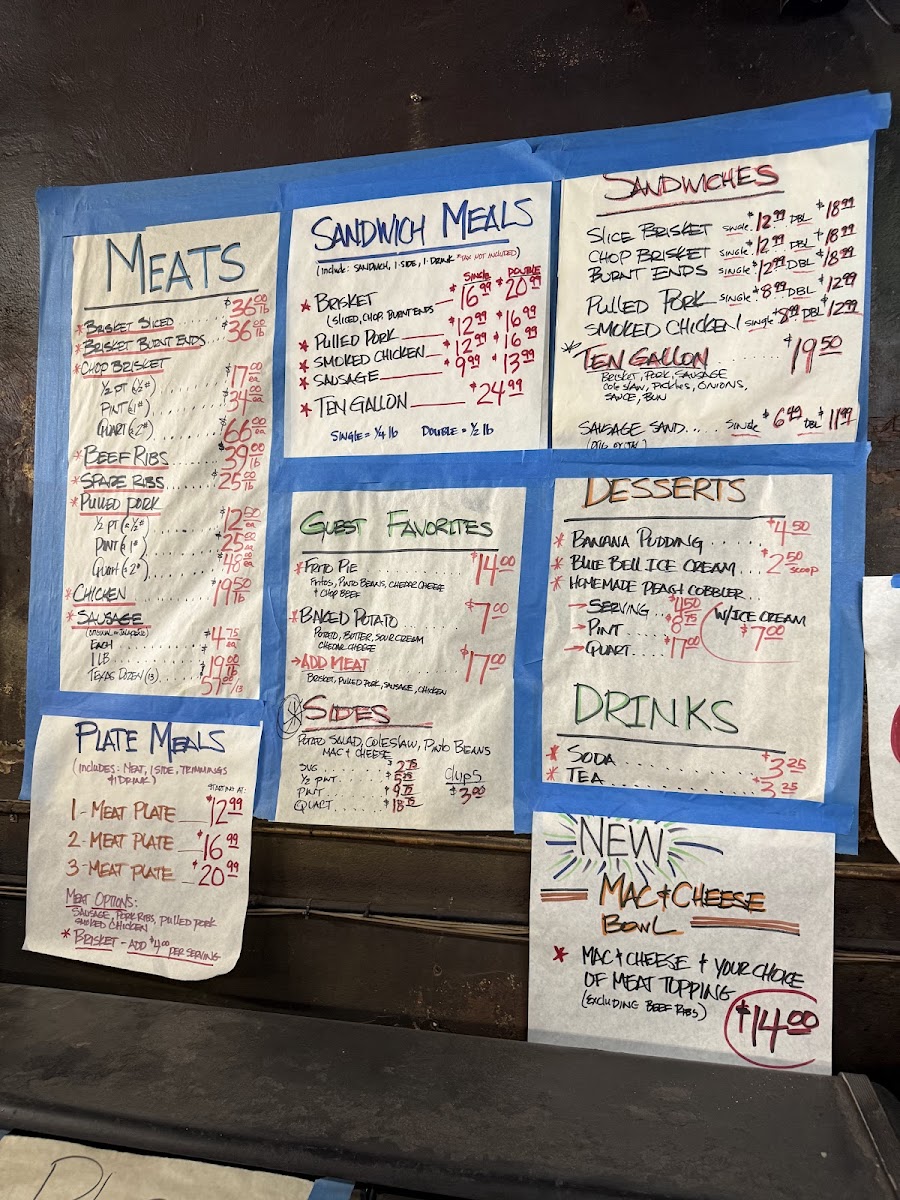 MEATS
* BRISKET SLICED $36.00 lb
* BRISKET BURNT ENDS $36.00 lb
* CHOP BRISKET
1/2 PT (1/2#) $17.00 ea
PINT (1#) $34.00 ea
QUART (2#) $66.00 ea
* BEEF RIBS $39.00 lb
* SPARE RIBS $25.00 lb
* PULLED PORK
1/2 PT (1/2#) $12.50 ea
PINT (1#) $25.00 ea
QUART (2#) $48.00 ea
* CHICKEN $19.50 lb
* SAUSAGE
(ORIGINAL or JALAPEÑO)
EACH $4.75 ea
1 LB $19.00 lb
TEXAS DOZEN (13) 57.00/13
SANDWICH MEALS
(INCLUDE: SANDWICH, 1 SIDE, 1 DRINK *TAX NOT INCLUDED)
SINGLE DOUBLE
* BRISKET — $16.99 $20.99
(SLICED, CHOP, BURNT ENDS)
* PULLED PORK — $12.99 $16.99
* SMOKED CHICKEN — $12.99 $16.99
* SAUSAGE — $9.99 $13.99
* TEN GALLON — $24.99
SINGLE = 1/4 lb DOUBLE = 1/2 lb
SANDWICHES
SLICE BRISKET SINGLE $12.99 DBL $18.99
CHOP BRISKET SINGLE $12.99 DBL $18.99
BURNT ENDS SINGLE $12.99 DBL $18.99
PULLED PORK SINGLE $8.99 DBL $12.99
SMOKED CHICKEN SINGLE $8.99 DBL $12.99
* TEN GALLON $19.50
BRISKET, PORK, SAUSAGE
COLESLAW, PICKLES, ONIONS,
SAUCE, BUN
SAUSAGE SAND.... SINGLE $6.49 DBL $11.99
GUEST FAVORITES
* FRITO PIE $14.00
FRITOS, PINTO BEANS, CHEDAR CHEESE
+ CHOP BEEF
* BAKED POTATO $7.00
POTATO, BUTTER, SOUR CREAM
CHEDAR CHEESE
→ ADD MEAT $17.00
BRISKET, PULLED PORK, SAUSAGE, CHICKEN
* SIDES
POTATO SALAD, COLESLAW, PINTO BEANS
MAC & CHEESE
SVG $2.75
1/2 PINT $5.25
PINT $9.75
QUART $18.75
CUPS
$3.00
DESSERTS
* BANANA PUDDING $4.50
* BLUE BELL ICE CREAM $2.50 SCOOP
* HOMEMADE PEACH COBBLER
→ SERVING $4.50
→ PINT $8.75
→ QUART $17.00
W/ICE CREAM
$7.00
DRINKS
* SODA $3.25
* TEA $3.25
PLATE MEALS
(INCLUDES: MEAT, 1 SIDE, TRIMMINGS
& DRINK)
STARTING AT:
1 - MEAT PLATE $12.99
2 - MEAT PLATE $16.99
3 - MEAT PLATE $20.99
MEAT OPTIONS:
SAUSAGE, PORK RIBS, PULLED PORK
SMOKED CHICKEN
* BRISKET - ADD $4.00 PER SERVING
NEW
MAC & CHEESE
BOWL
* MAC & CHEESE + YOUR CHOICE
OF MEAT TOPPING
(EXCLUDING BEEF RIBS)
$14.00